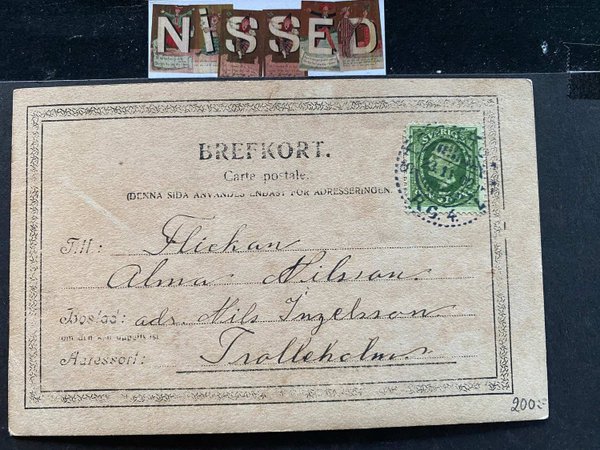 NiSSED
BREFKORT.
Carte postale.
(DENNA SIDA ANVÄNDES ENDAST FÖR ADRESSERINGEN.
SVERIGE
Till: Flickan
Alma Nilsson
Bostad: adr. Nils Ingelsson
om den kan uppgifvas
Adressort: Trolleholm
200:-